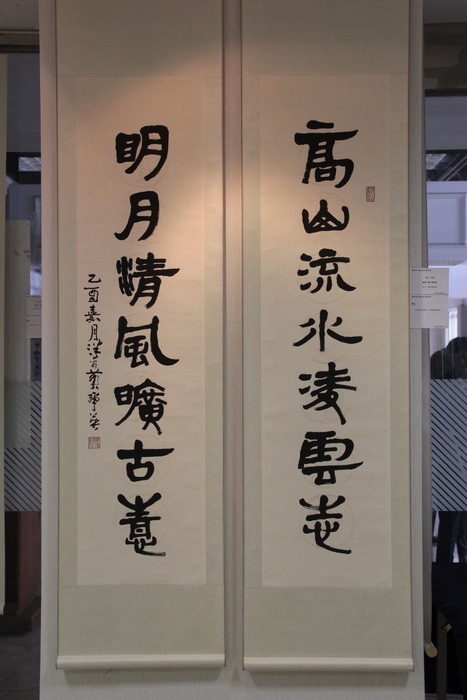 高山流水凌雲志
明月清風曠古意
乙酉嘉月